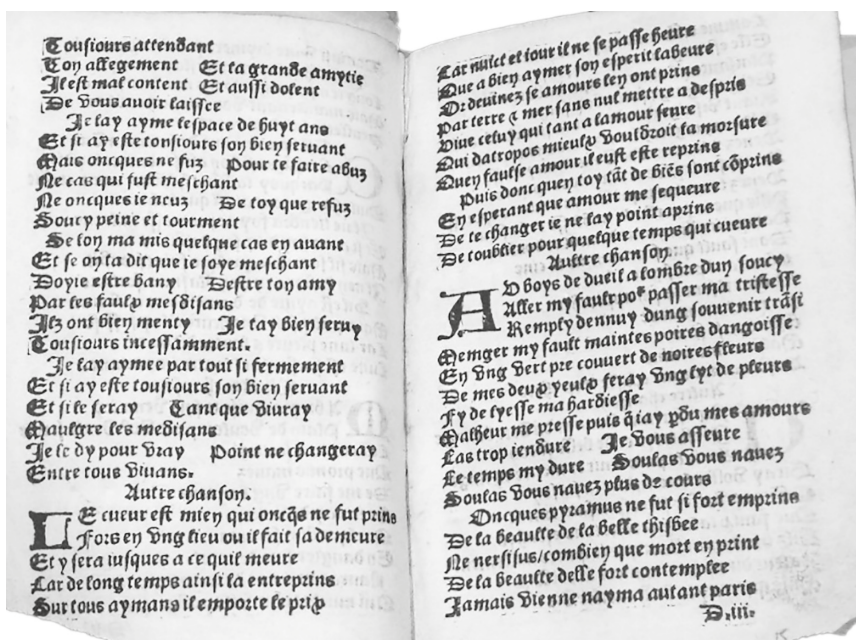 Tousiours attendant
Toy allegement Et ta grande amytie
Il est mal content Et aussi dolent
De vous auoir laissee
Je lay ayme lespace de huyt ans
Et si ay este tousiours soy biey seruant
Mais oncques ne fuz Pour te faire abuz
Ne cas qui fust meschant
Ne oncques ie neuz De toy que refuz
Soucy peine et tourment
Se loy ma mis quelque cas ey auant
Et se oy ta dit que ie soye meschant
Doyie estre bany Destre toy amy
Par les faulx mesdisans
Ilz ont biey menty Je tay biey seruy
Tousiours incessamment.
Je lay aymee par tout si fermement
Et si ay este tousiours soy biey seruant
Et si le seray Tant que viuray
Maulgre les medisans
Je le dy pour vray Point ne changeray
Entre tous viuans.
Autre chansoy.
LE cueur est miey qui oncq̄s ne fut prins
Fors ey vng lieu ou il fait sa demeure
Et y sera iusques a ce quil meure
Car de long temps ainsi la entreprins
Sur tous aymans il emporte le prix
Car nuict et iour il ne se passe heure
Que a biey aymer soy esperit labeure
Or deuinez se amours ley ont prins
Par terre & mer sans nul mettre a despris
Viue celuy qui tant a lamour seure
Qui datropos mieulx vouldroit la morsure
Quey faulse amour il eust este reprins
Puis donc quey toy tāt de biēs sont cōprins
Ey esperant que amour me sequeure
De te changer ie ne lay point aprins
De toublier pour quelque temps qui cueure
Aultre chansoy.
AV boys de dueil a lombre duy soucy
Aller my fault poᵘʳ passer ma tristesse
Remply dennuy dung souuenir trāsi
Menger my fault maintes poires dangoisse
Ey vng vert pre couuert de noires fleurs
De mes deux yeulx feray vng lyt de pleurs
Fy de lyesse ma hardiesse
Malheur me presse puis q̄ iay ꝑdu mes amours
Las trop iendure Je vous asseure
Le temps my dure Soulas vous nauez
Soulas vous nauez plus de cours
Oncques pyramus ne fut si fort emprins
De la beaulte de la belle thisbee
Ne nersisus/combiey que mort ey print
De la beaulte delle fort contemplee
Jamais vienne nayma autant paris
D.iii.